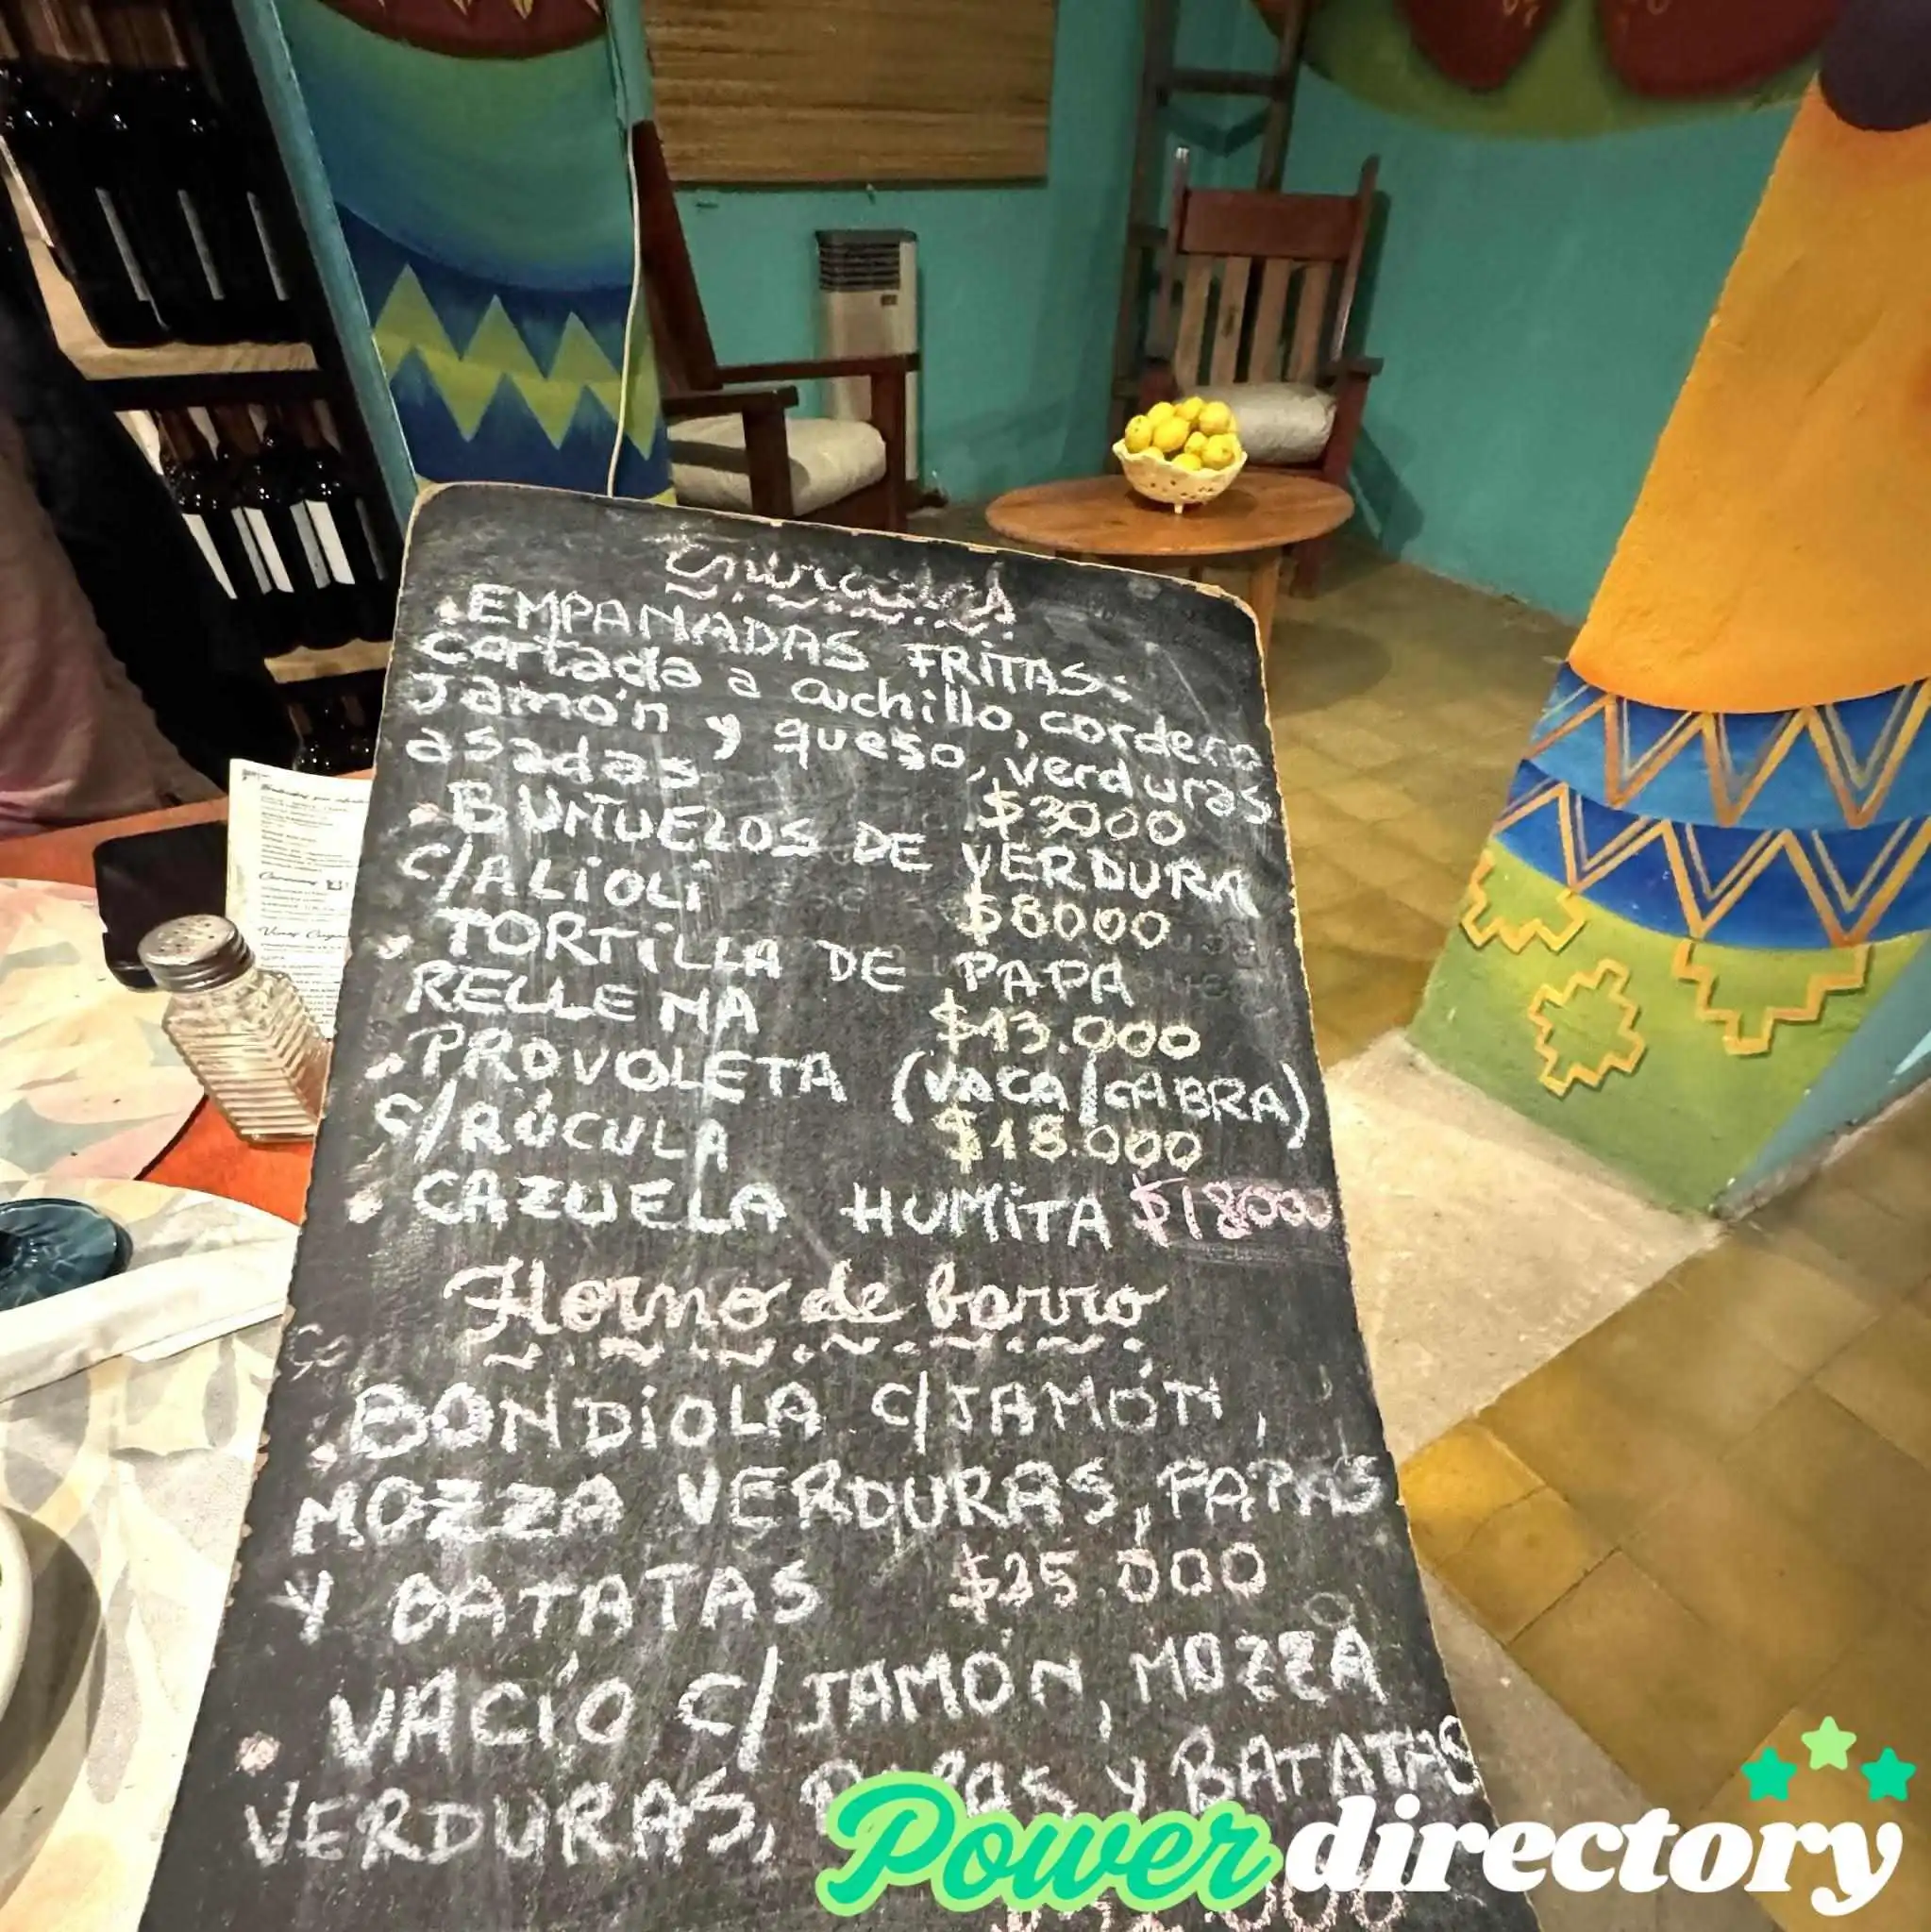 Entradas
.EMPANADAS FRITAS:
Cortada a cuchillo, cordero
Jamón y queso, verduras
asadas $3000
.BUÑUELOS DE VERDURA
C/ALIOLI $8000
TORTILLA DE PAPA
RELLENA $13.000
.PROVOLETA (VACA/CABRA)
C/RÚCULA $18.000
. CAZUELA HUMITA $18000
Horno de barro
.BONDIOLA C/JAMÓN,
MOZZA VERDURAS, PAPAS
Y BATATAS $25.000
. VACÍO C/JAMÓN, MOZZA
VERDURAS, PAPAS Y BATATAS
Power directory